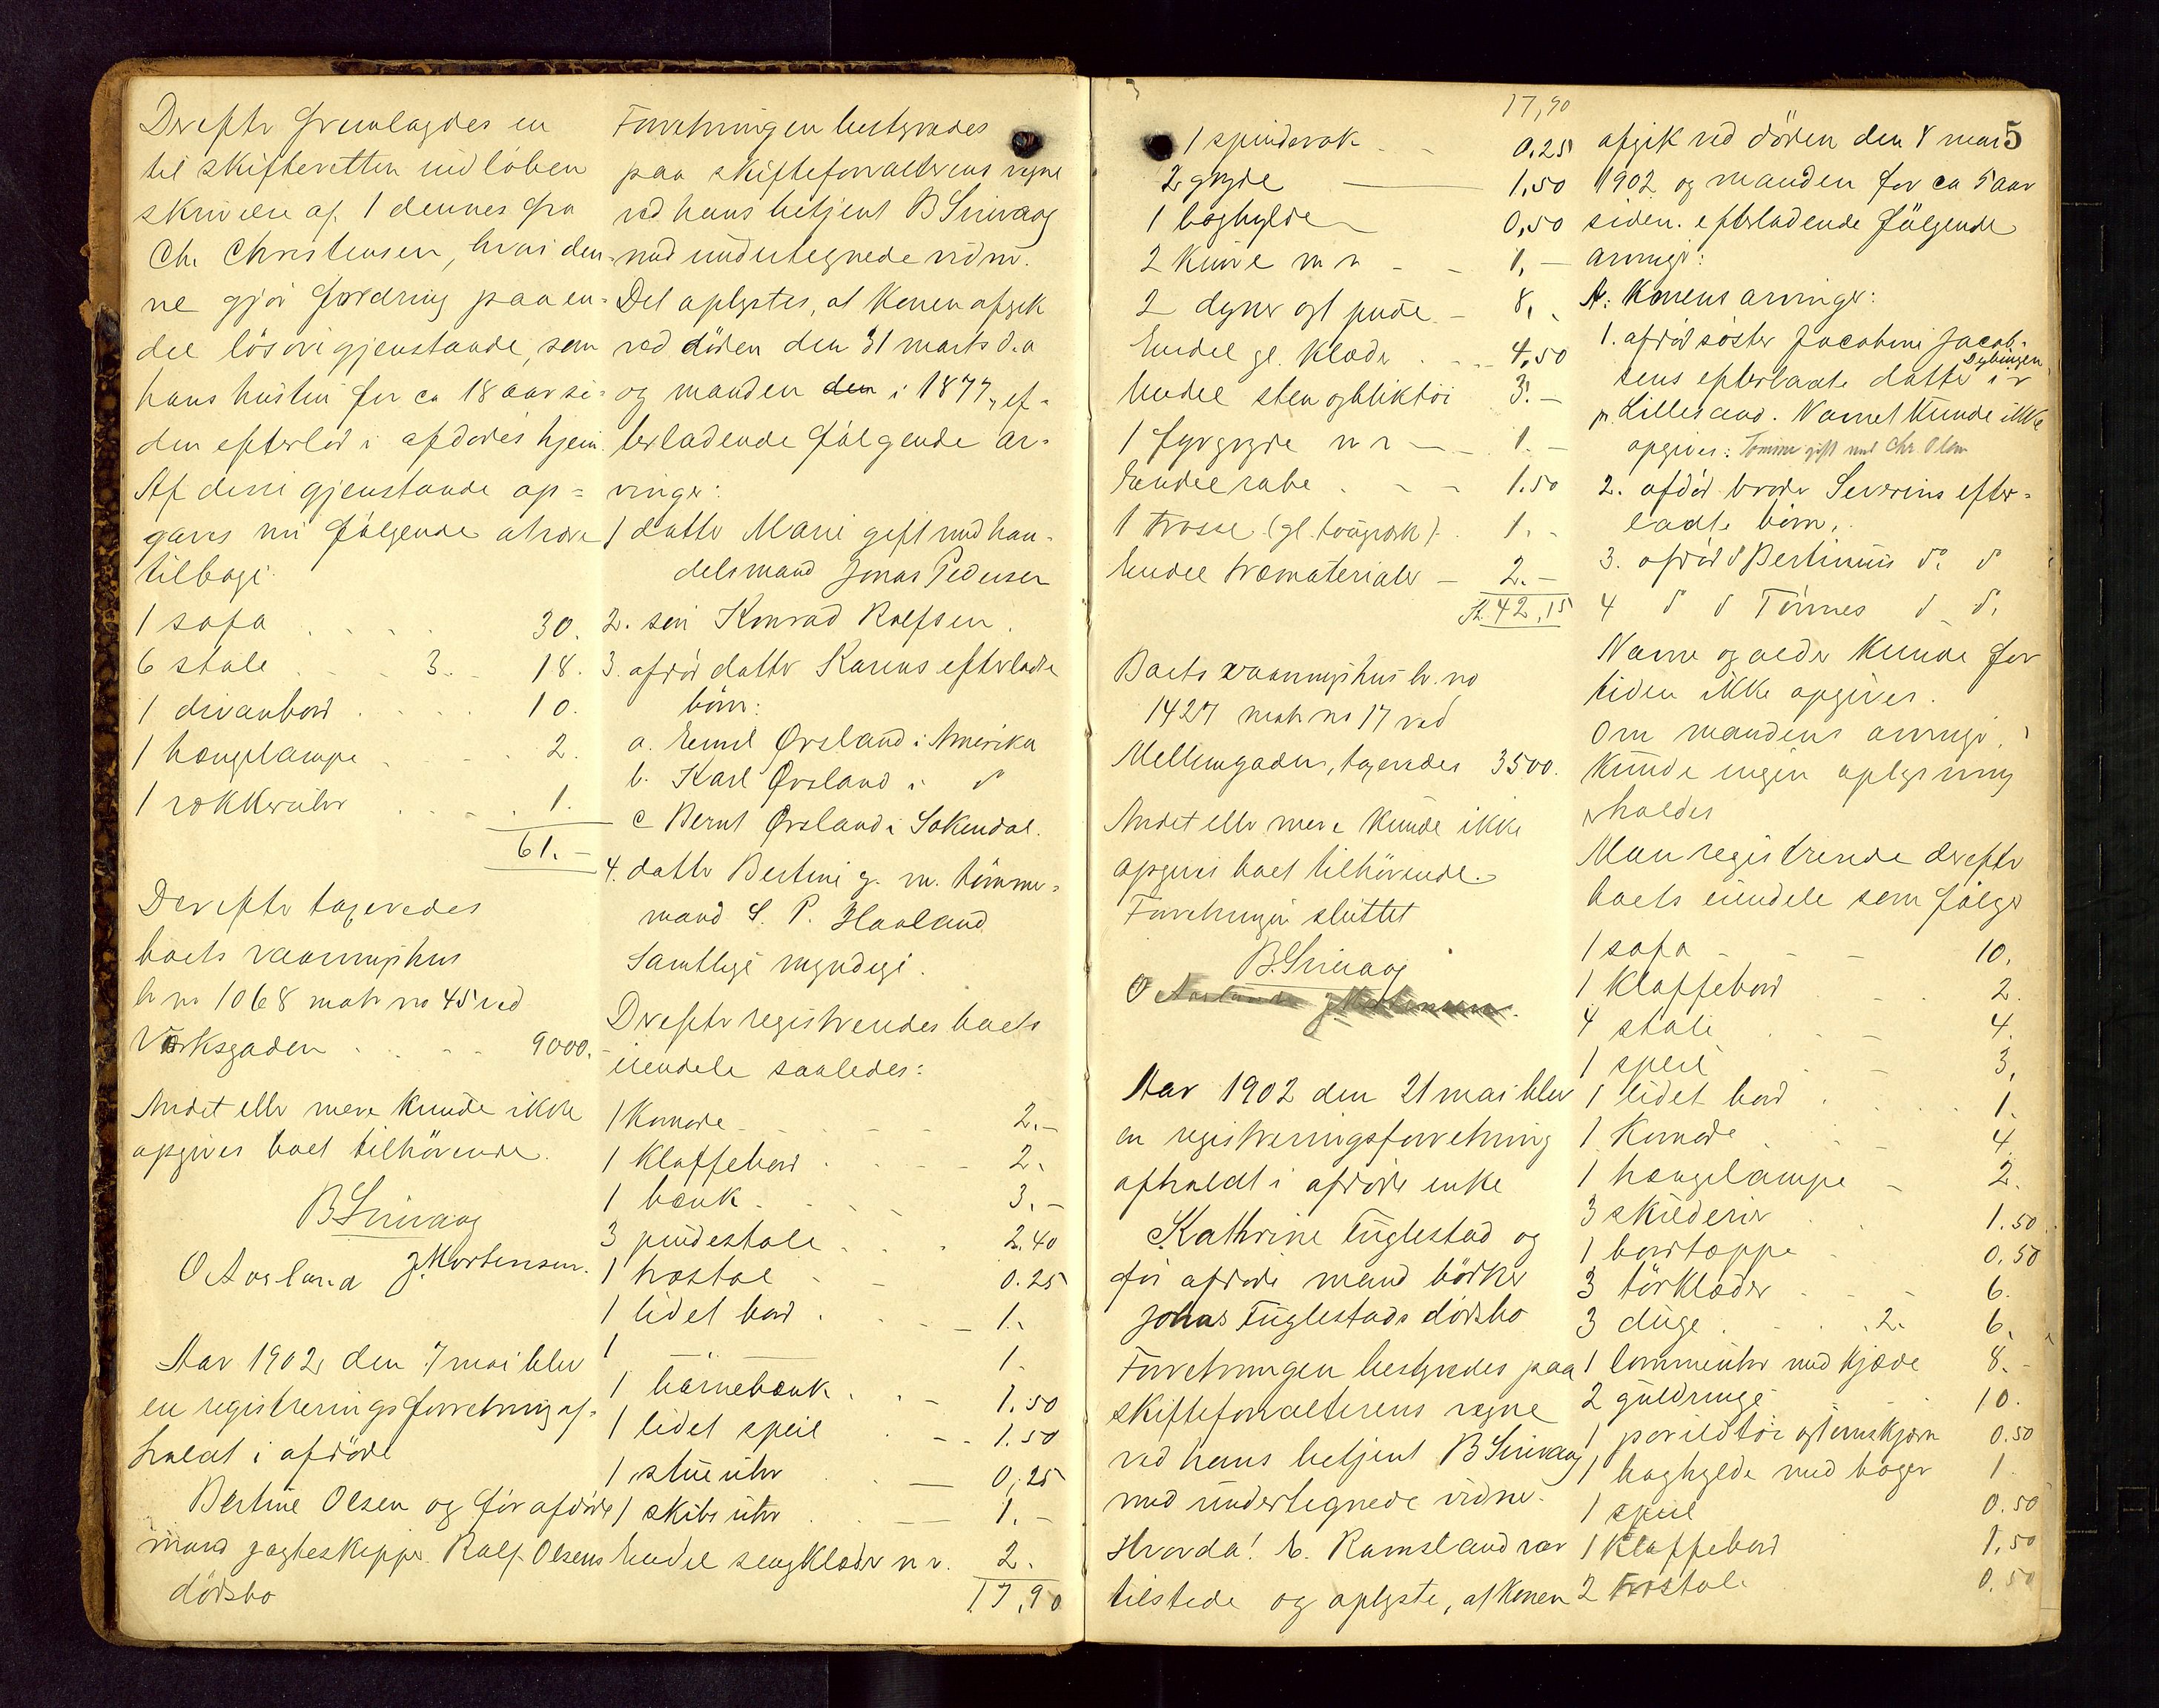 Derefter fremlagdes en
til skifteretten indløben
skrivelse af 1 dennes fra
Chr Christensen, hvori den-
ne gjør fordring paa en-
del løsøregjenstande, som
hans hustru for ca 18 aar si-
den efterlod i afdødes hjem.
Af disse gjenstande op-
gaves nu følgende at være
tilbage
1 sofa 30.
6 stole 3. 18.
1 divanbord 10.
1 hængelampe 2.
1 vækkeruhr 1.
61.-
Derefter taxeredes
boets vaaningshus
br no 1068 matr no 45 ved
Værksgaden 9000.-
Andet eller mere kunde ikke
opgives boet tilhørende.
B Sirevaag
O Aarland J. Mortensen.
Aar 1902 den 7 mai blev
en registreringsforretning af-
holdt i afdøde
Bertine Olsen og før afdøde
mand jagteskipper Rolf Olsens
dødsbo
Forretningen bestyredes
paa skifteforvalterens vegne
ved hans betjent B Sirevaag
med undertegnede vidner.
Det oplystes, at konen afgik
ved døden den 31 marts d.a
og manden den i 1877, ef-
terladende følgende ar-
vinger:
1 datter Marie gift med han-
delsmand Jonas Pedersen
2. søn Konrad Rolfsen.
3. afdød datter Karens efterladte
børn:
a. Emil Ørsland i Amerika
b. Karl Ørsland i d
c Bernt Ørsland i Sokendal.
4. datter Bertine g. m. tømmer-
mand S. P. Haaland
Samtlige myndige.
Derefter registreredes boets
eiendele saaledes:
1 Komode 2.-
1 Klaffebord 2.
1 bænk 3.-
3 pindestole 2.40
1 træstol 0.25
1 lidet bord 1.
1 — 1.
1 børnebænk 1.50
1 lidet speil 1.50
1 stueuhr 0,25
1 skibsuhr 1.-
Endel sengklæder m v. 2.
17,90
17,90
5
1 spinderok 0.25
2 gryde 1,50
1 boghylde 0,50
2 kurve m v 1,-
2 dyner og 1 pude 8.
Endel gl. klæder 4,50
Endel sten og bliktøi 3.-
1 fyrgryde m v 1.-
Endel sabe 1.50
1 trosse (gl. tougværk) 1.-
Endel træmaterialer 2.-
Kr. 42,15
Boets vaaningshus br. no
1427 matr no 17 ved
Mellemgaden, taxeredes 3500.
Andet eller mere kunde ikke
opgives boet tilhørende.
Forretningen sluttet
B. Sirevaag
O Aarland J Mortensen.
Aar 1902 den 21 mai blev
en registreringsforretning
afholdt i afdøde enke
Kathrine Tuglestad og
før afdøde mand bødker
Johas Tuglestads dødsbo
Forretningen bestyredes paa
skifteforvalterens vegne
ved hans betjent B Sirevaag
med undertegnede vidner.
Hvorda! E. Ramsland var
tilstede og oplyste, at konen
afgik ved døden den 8 mai
1902 og manden for ca 5 aar
siden. efterladende følgende
arvinger:
A: Konens arvinger:
1. afdød søster Jacobine Jacob-
sens efterladte datter i Dybingen
pr. Lillesand. Navnet kunde ikke
opgives: Tomine gift med Chr Olsen
2. afdød broder Severins efter-
ladte børn.
3. afdød d Bertinius d. d
4 d d Tønnes d d.
Navne og alder kunde for
tiden ikke opgives.
Om mandens arvinger
kunde ingen oplysning
erholdes
Man registrerede derefter
boets eiendele som følger
1 sofa 10.
1 Klaffebord 2.
4 stole 4.
1 speil 3.
1 lidet bord 1.
1 Komode 4.
1 hængelampe 2.
3 skilderier 1.50
1 bordtæppe 0.50
3 tørklæder 6.
3 duge 2. 6.
1 lommeuhr med kjæde 8.-
2 guldringe 10.
1 par ildtøi og 1 ternskjørn 0.50
1 boghylde med bøger 1
1 speil 0.50
1 Klaffebord 1,50
2 træstole 0.50